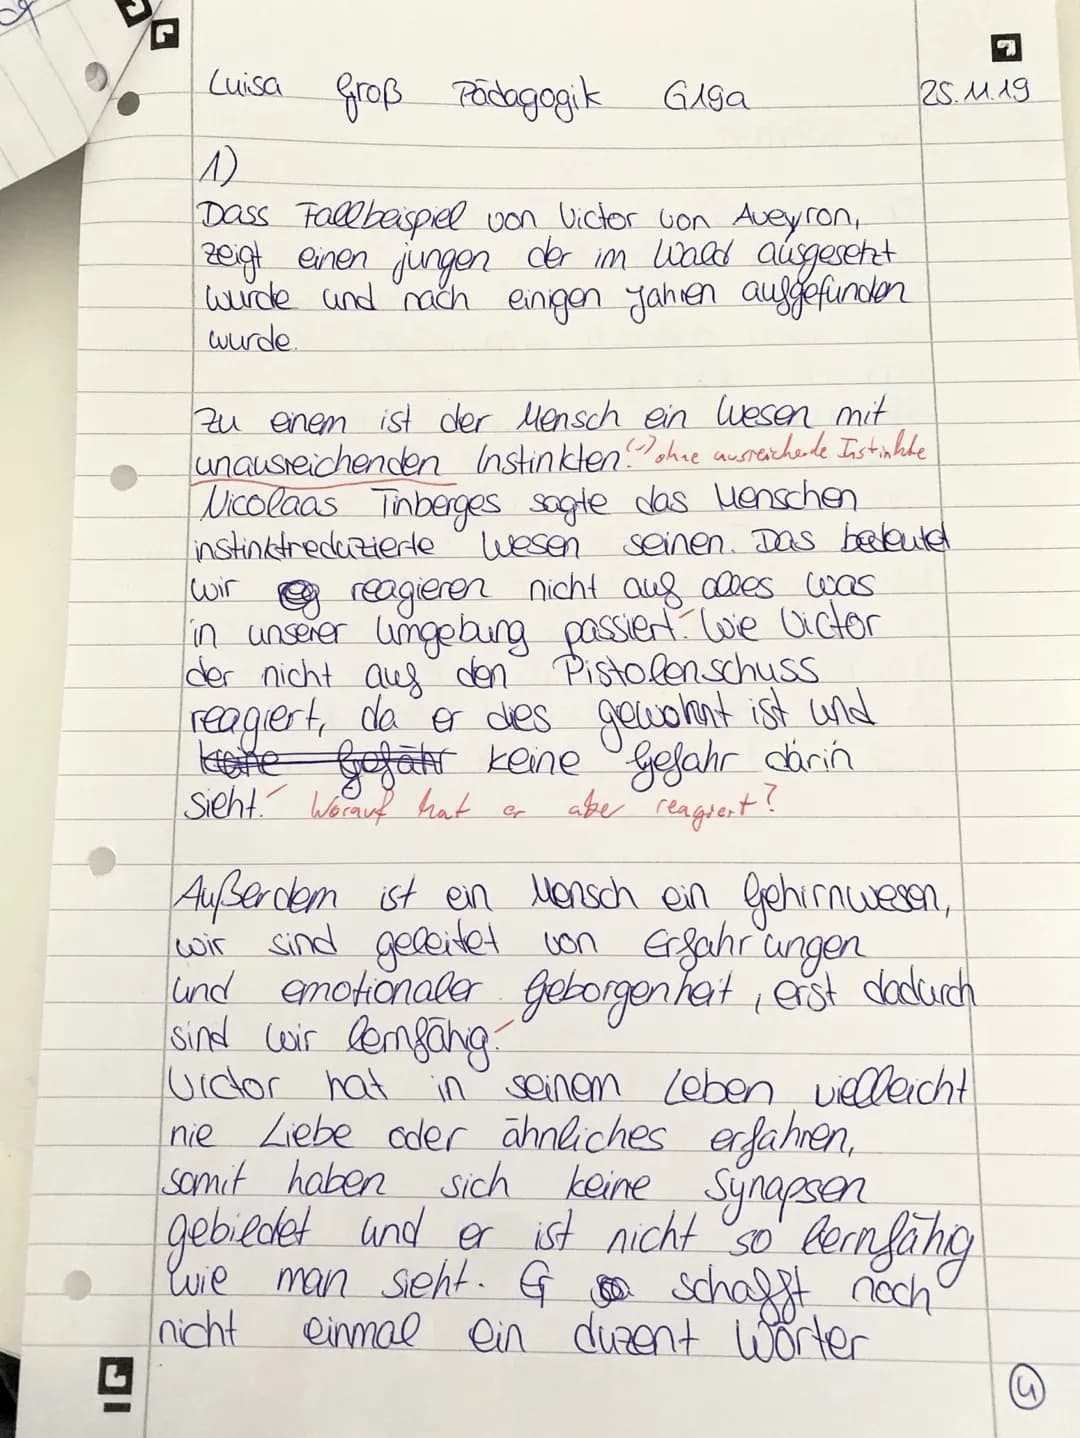 Luisa Groß Pädagogik G19a 25.11.19
1)
Dass Fallbeispiel von Victor von Aveyron,
zeigt einen jungen der im Wald ausgesetzt
wurde und nach einigen Jahren aufgefunden
wurde.
Zu einem ist der Mensch ein Wesen mit
unausreichenden Instinkten. (-) ohne ausreichende Instinkte
Nicolaas Tinberges sagte das Menschen
instinktreduzierte Wesen seinen. Das bedeutet
wir reagieren nicht auf alles was
in unserer Umgebung passiert. Wie Victor
der nicht auf den Pistolenschuss
reagiert, da er dies gewohnt ist und
keine Gefahr keine Gefahr darin
sieht. Worauf hat er aber reagiert?
Außerdem ist ein Mensch ein Gehirnwesen,
wir sind geleitet von Erfahrungen
und emotionaler Geborgenheit, erst dadurch
sind wir lernfähig.
Victor hat in seinem Leben vielleicht
nie Liebe oder ähnliches erfahren,
somit haben sich keine Synapsen
gebildet und er ist nicht so lernfähig
wie man sieht. Er schafft noch
nicht einmal ein duzent Wörter
4